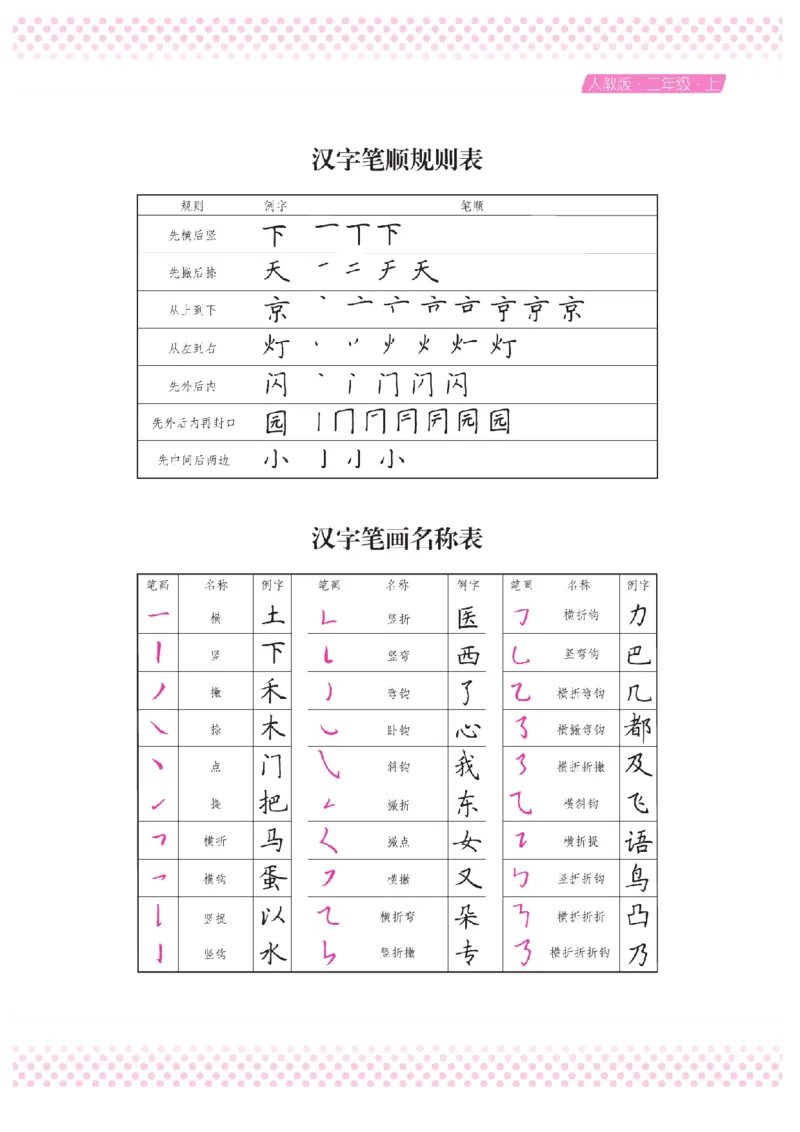 人教版·二年级·上
汉字笔顺规则表
规则 例字 笔顺
先横后竖 下 一 丅 下
先撇后捺 天 一 二 チ 天
从上到下 京 丶 亠 京
从左到右 灯 丶 火 灯
先外后内 闪 丶 门 闪
先外后内再封口 园 丨 冂 园
先中间后两边 小 亅 小
汉字笔画名称表
笔画 名称 例字 笔画 名称 例字 笔画 名称 例字
一 横 土 𠃊 竖折 医 𠃌 横折钩 力
丨 竖 下 竖弯 西 乚 竖弯钩 巴
丿 撇 禾 弯钩 了 乙 横折弯钩 几
㇏ 捺 木 卧钩 心 横撇弯钩 都
丶 点 门 ㇂ 斜钩 我 ㇋ 横折折撇 及
㇀ 提 把 ㇜ 撇折 东 ⺄ 横斜钩 飞
㇕ 横折 马 ㇛ 撇点 女 ㇊ 横折提 语
㇖ 横钩 蛋 ㇇ 横撇 又 ㇉ 竖折折钩 鸟
竖提 以 ㇍ 横折弯 朵 ㇎ 横折折折 凸
亅 竖钩 水 ㇞ 竖折撇 专 ㇡ 横折折折钩 乃